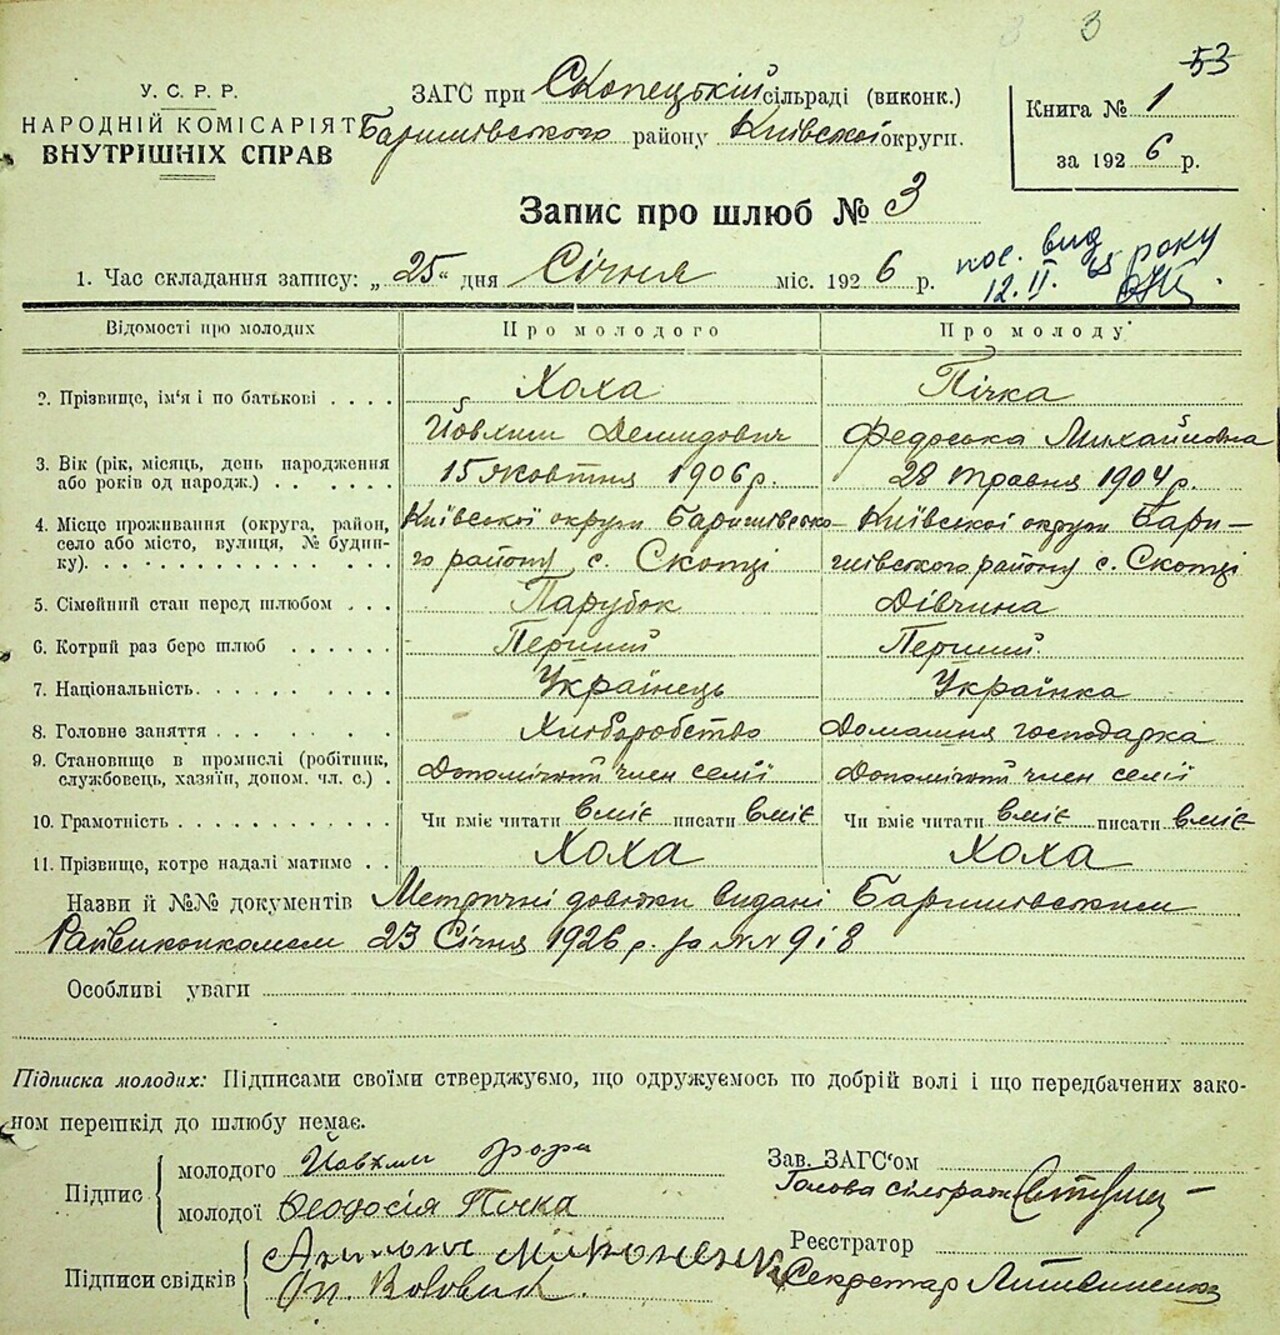 3
53
У. С. Р. Р.
НАРОДНІЙ КОМІСАРІЯТ
ВНУТРІШНІХ СПРАВ
ЗАГС при Скопецькій сільраді (виконк.)
Баришівського району Київської округи.
Книга № 1
за 1926 р.
Запис про шлюб № 3
1. Час складання запису: „25“ дня Січня міс. 1926 р.
пос. вид
12. II. 65 року
Відомості про молодих Про молодого Про молоду
2. Прізвище, ім'я і по батькові . . . . Хоха Пічка
Йовхим Демидович Федоська Михайловна
3. Вік (рік, місяць, день народження або років од народж.) . . . . . . 15 Жовтня 1906 р. 28 травня 1904 р.
4. Місце проживання (округа, район, Київської округи Баришівсько- Київської округи Бари-
село або місто, вулиця, № будинку). го району с. Скопці шівського району с. Скопці
5. Сімейний стан перед шлюбом . . . Парубок Дівчина
6. Котрий раз бере шлюб . . . . . . Перший Перший.
7. Національність. . . . . . . . . . Українець Українка
8. Головне заняття . . . . . . . Хліборобство Домашня господарка
9. Становище в промислі (робітник, службовець, хазяїн, допом. чл. с.) . Допомічний член семії Допомічний член семії
10. Грамотність . . . . . . . . . . . . Чи вміє читати вміє писати вміє Чи вміє читати вміє писати вміє
11. Прізвище, котре надалі матиме . . Хоха Хоха
Назви й №№ документів Метричні довідки видані Баришівським
Райвиконкомом 23 Січня 1926 р. за №№ 9 і 8
Особливі уваги
Підписка молодих: Підписами своїми стверджуємо, що одружуємось по добрій волі і що передбачених зако-
ном перешкід до шлюбу немає.
Підпис
молодого Йовхим Хоха
молодої Феодосія Пічка
Підписи свідків
Зав. ЗАГС'ом
Голова сільради
Реєстратор
Секретар Литвиненко